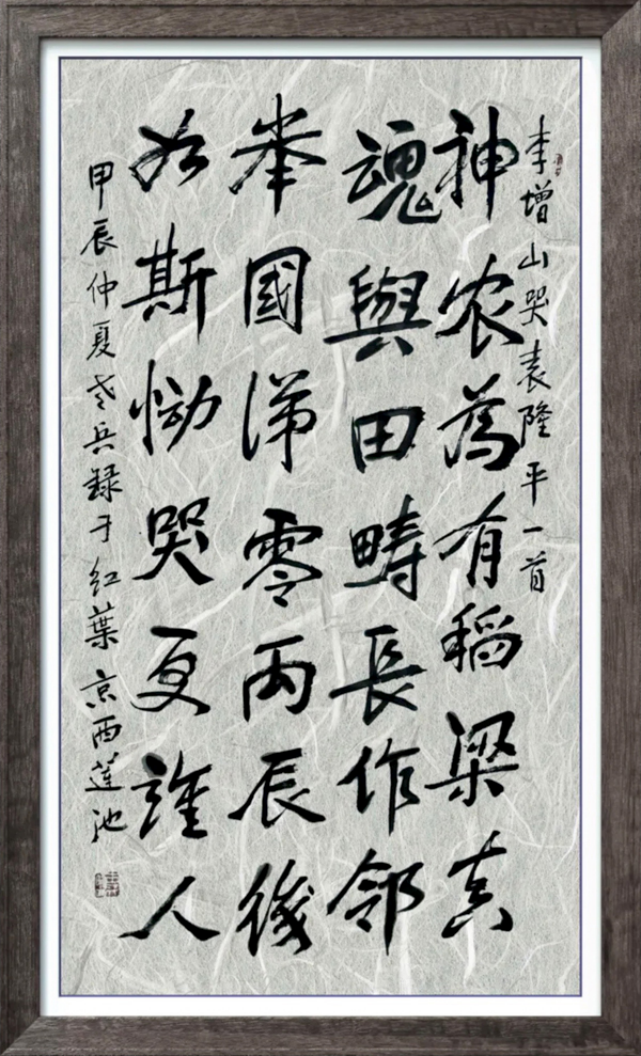 李增山哭袁隆平一首
神农為有稻粱真
魂與田畴長作邻
举國涕零丙辰後
如斯恸哭更誰人
甲辰仲夏老兵録于红葉京西莲池